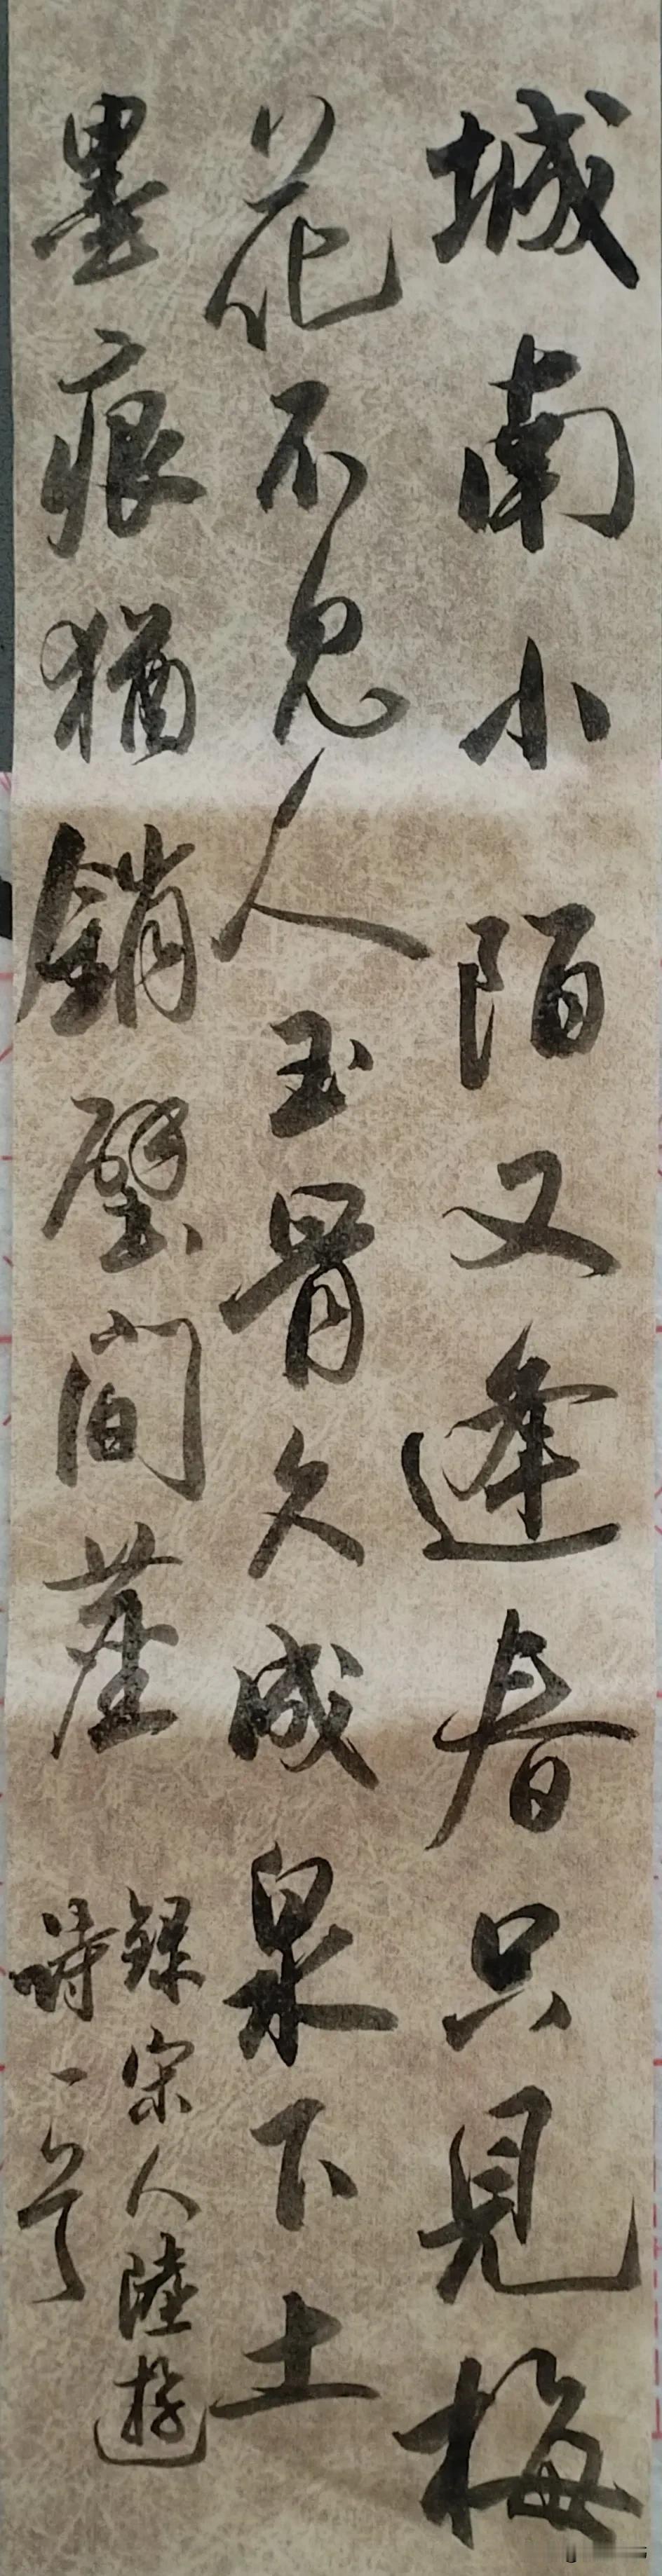 城南小陌又逢春只見梅
花不見人玉骨久成泉下土
墨痕猶銷壁間塵
錄宋人陸遊
詩一首